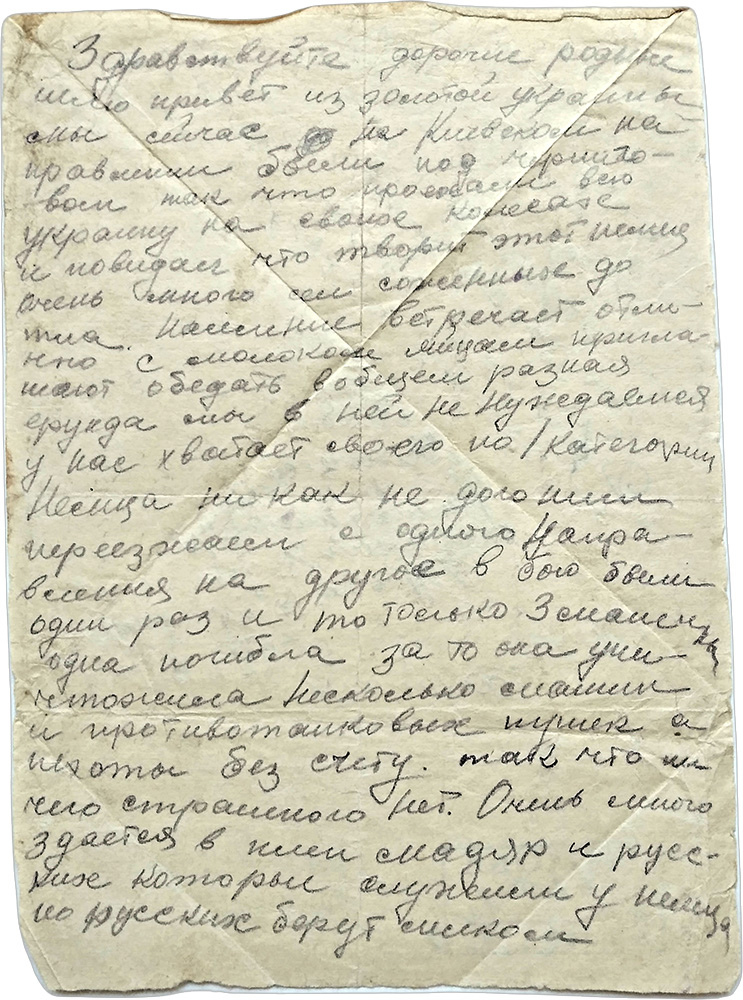 Здравствуйте дорогие родные
шлю привет из золотой украины
мы сейчас на Киевском на-
правлении были под чернито-
вом так что проехали всю
украину на своих колесах
и повидали что творит этот немец
очень много сел сожженные до
тла. Население встречает отли-
чно с молоком яйцам пригла-
шают обедать вобщем разная
ерунда мы в ней не нуждаемся
у нас хватает своего по 1 категории
Немца ни как не догоним
переезжаем с одного напра-
вления на другое в бою были
один раз и то только 3 машины
одна погибла за то она уни-
чтожила несколько машин
и противотанковых пушек а
пехоты без счету. так что ни
чего страшного нет. Очень много
здается в плен мадяр и русс-
ких которые служили у немца
но русских берут